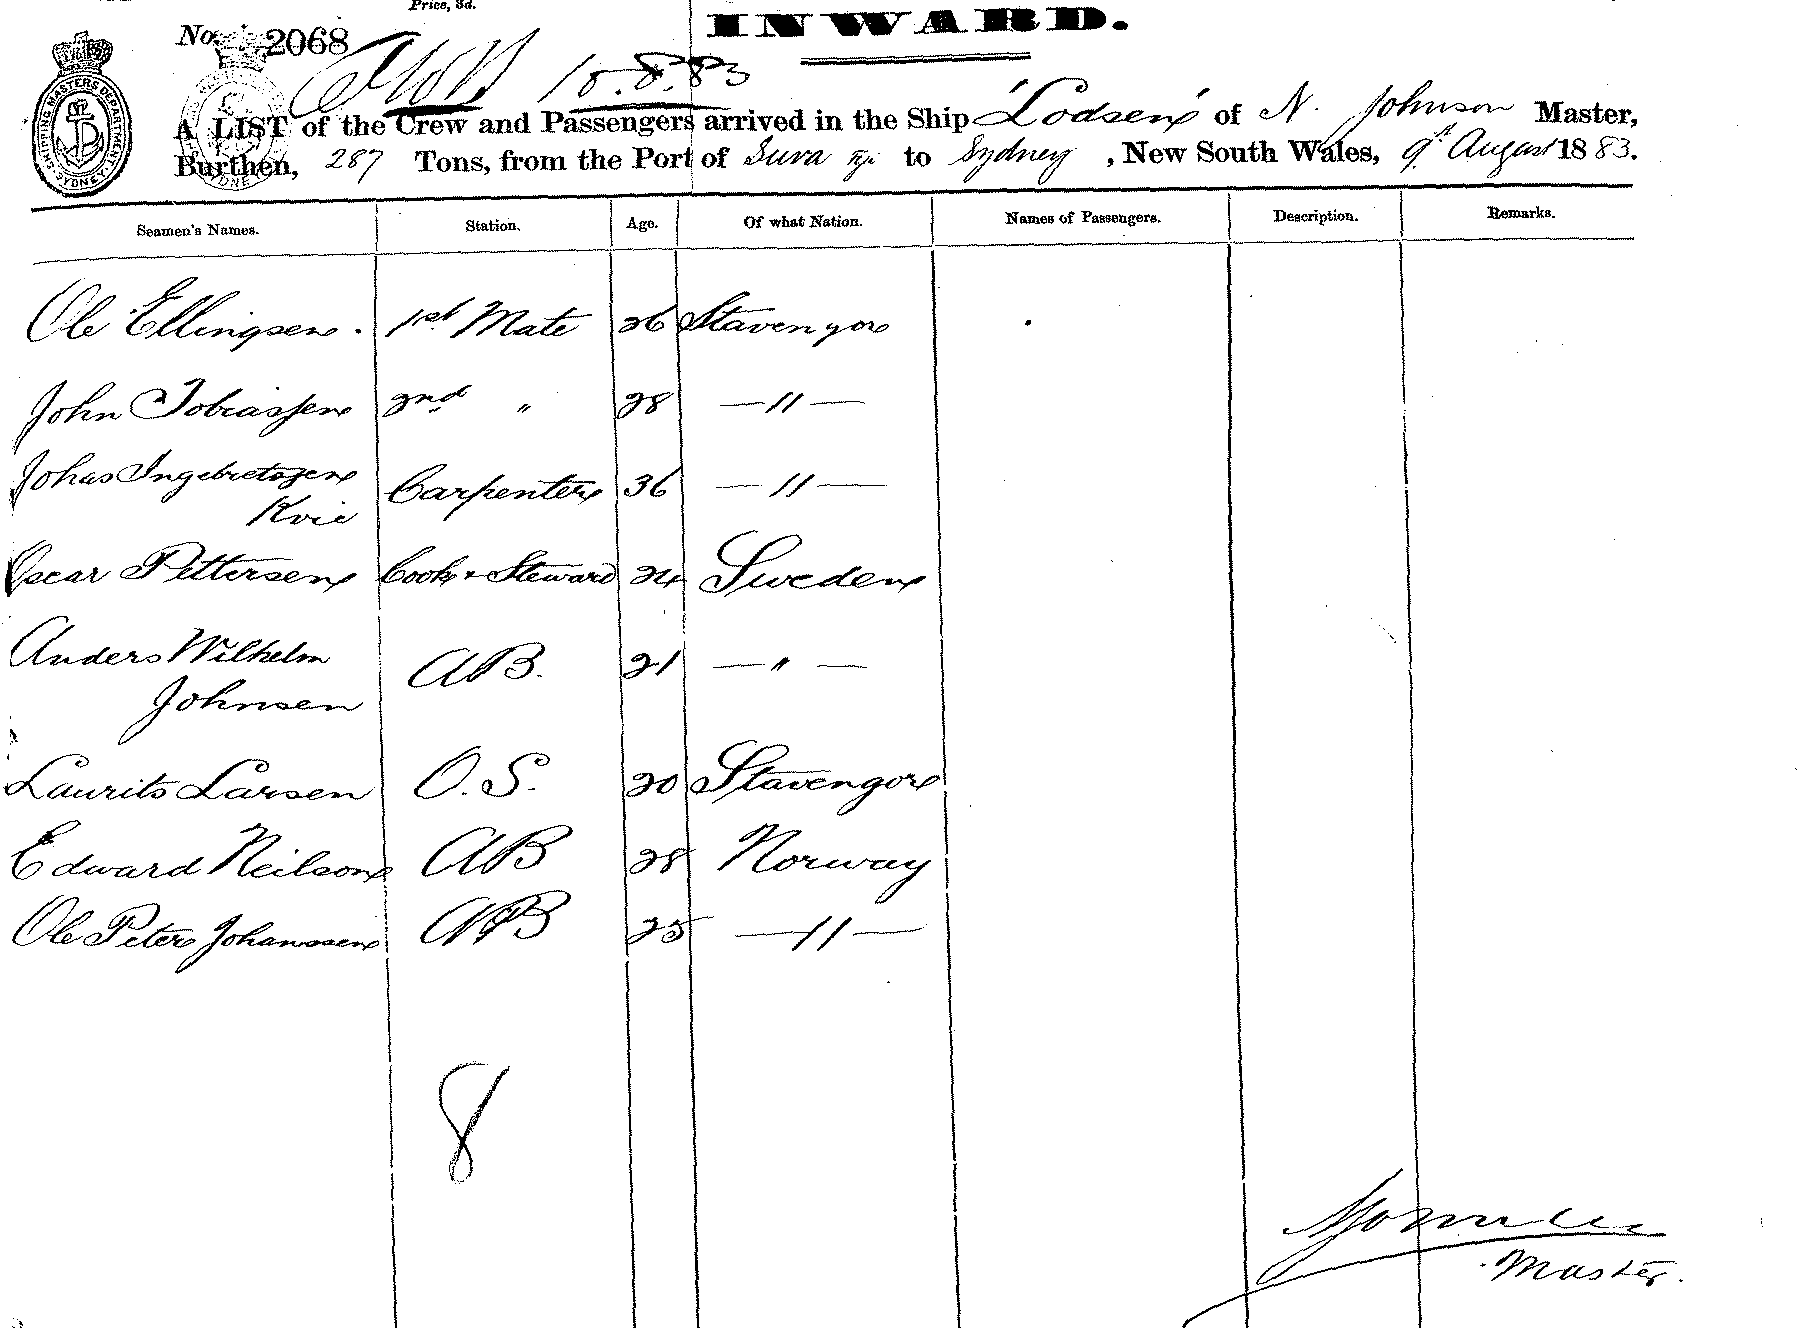 Price, 3d.
INWARD.
No. 2068
10.8.83
SHIPPING MASTERS DEPARTMENT SYDNEY
A LIST of the Crew and Passengers arrived in the Ship "Lodsen" of N. Johnson Master,
Burthen, 287 Tons, from the Port of Suva Fiji to Sydney, New South Wales, 9th August 1883.
Seamen's Names. Station. Age. Of what Nation. Names of Passengers. Description. Remarks.
Ole Ellingsen. 1st Mate 26 Stavengor
John Tobiassen 2nd " 28 — " —
Johas Ingebretsgen Carpenter 36 — " —
Kvie
Oscar Pettersen Cook & Steward 24 Sweden
Anders Wilhelm AB. 21 — " —
Johnsen
Laurits Larsen O.S. 20 Stavengor
Edward Neilson AB 28 Norway
Ole Peter Johanssen AB 25 — " —
8
Master.